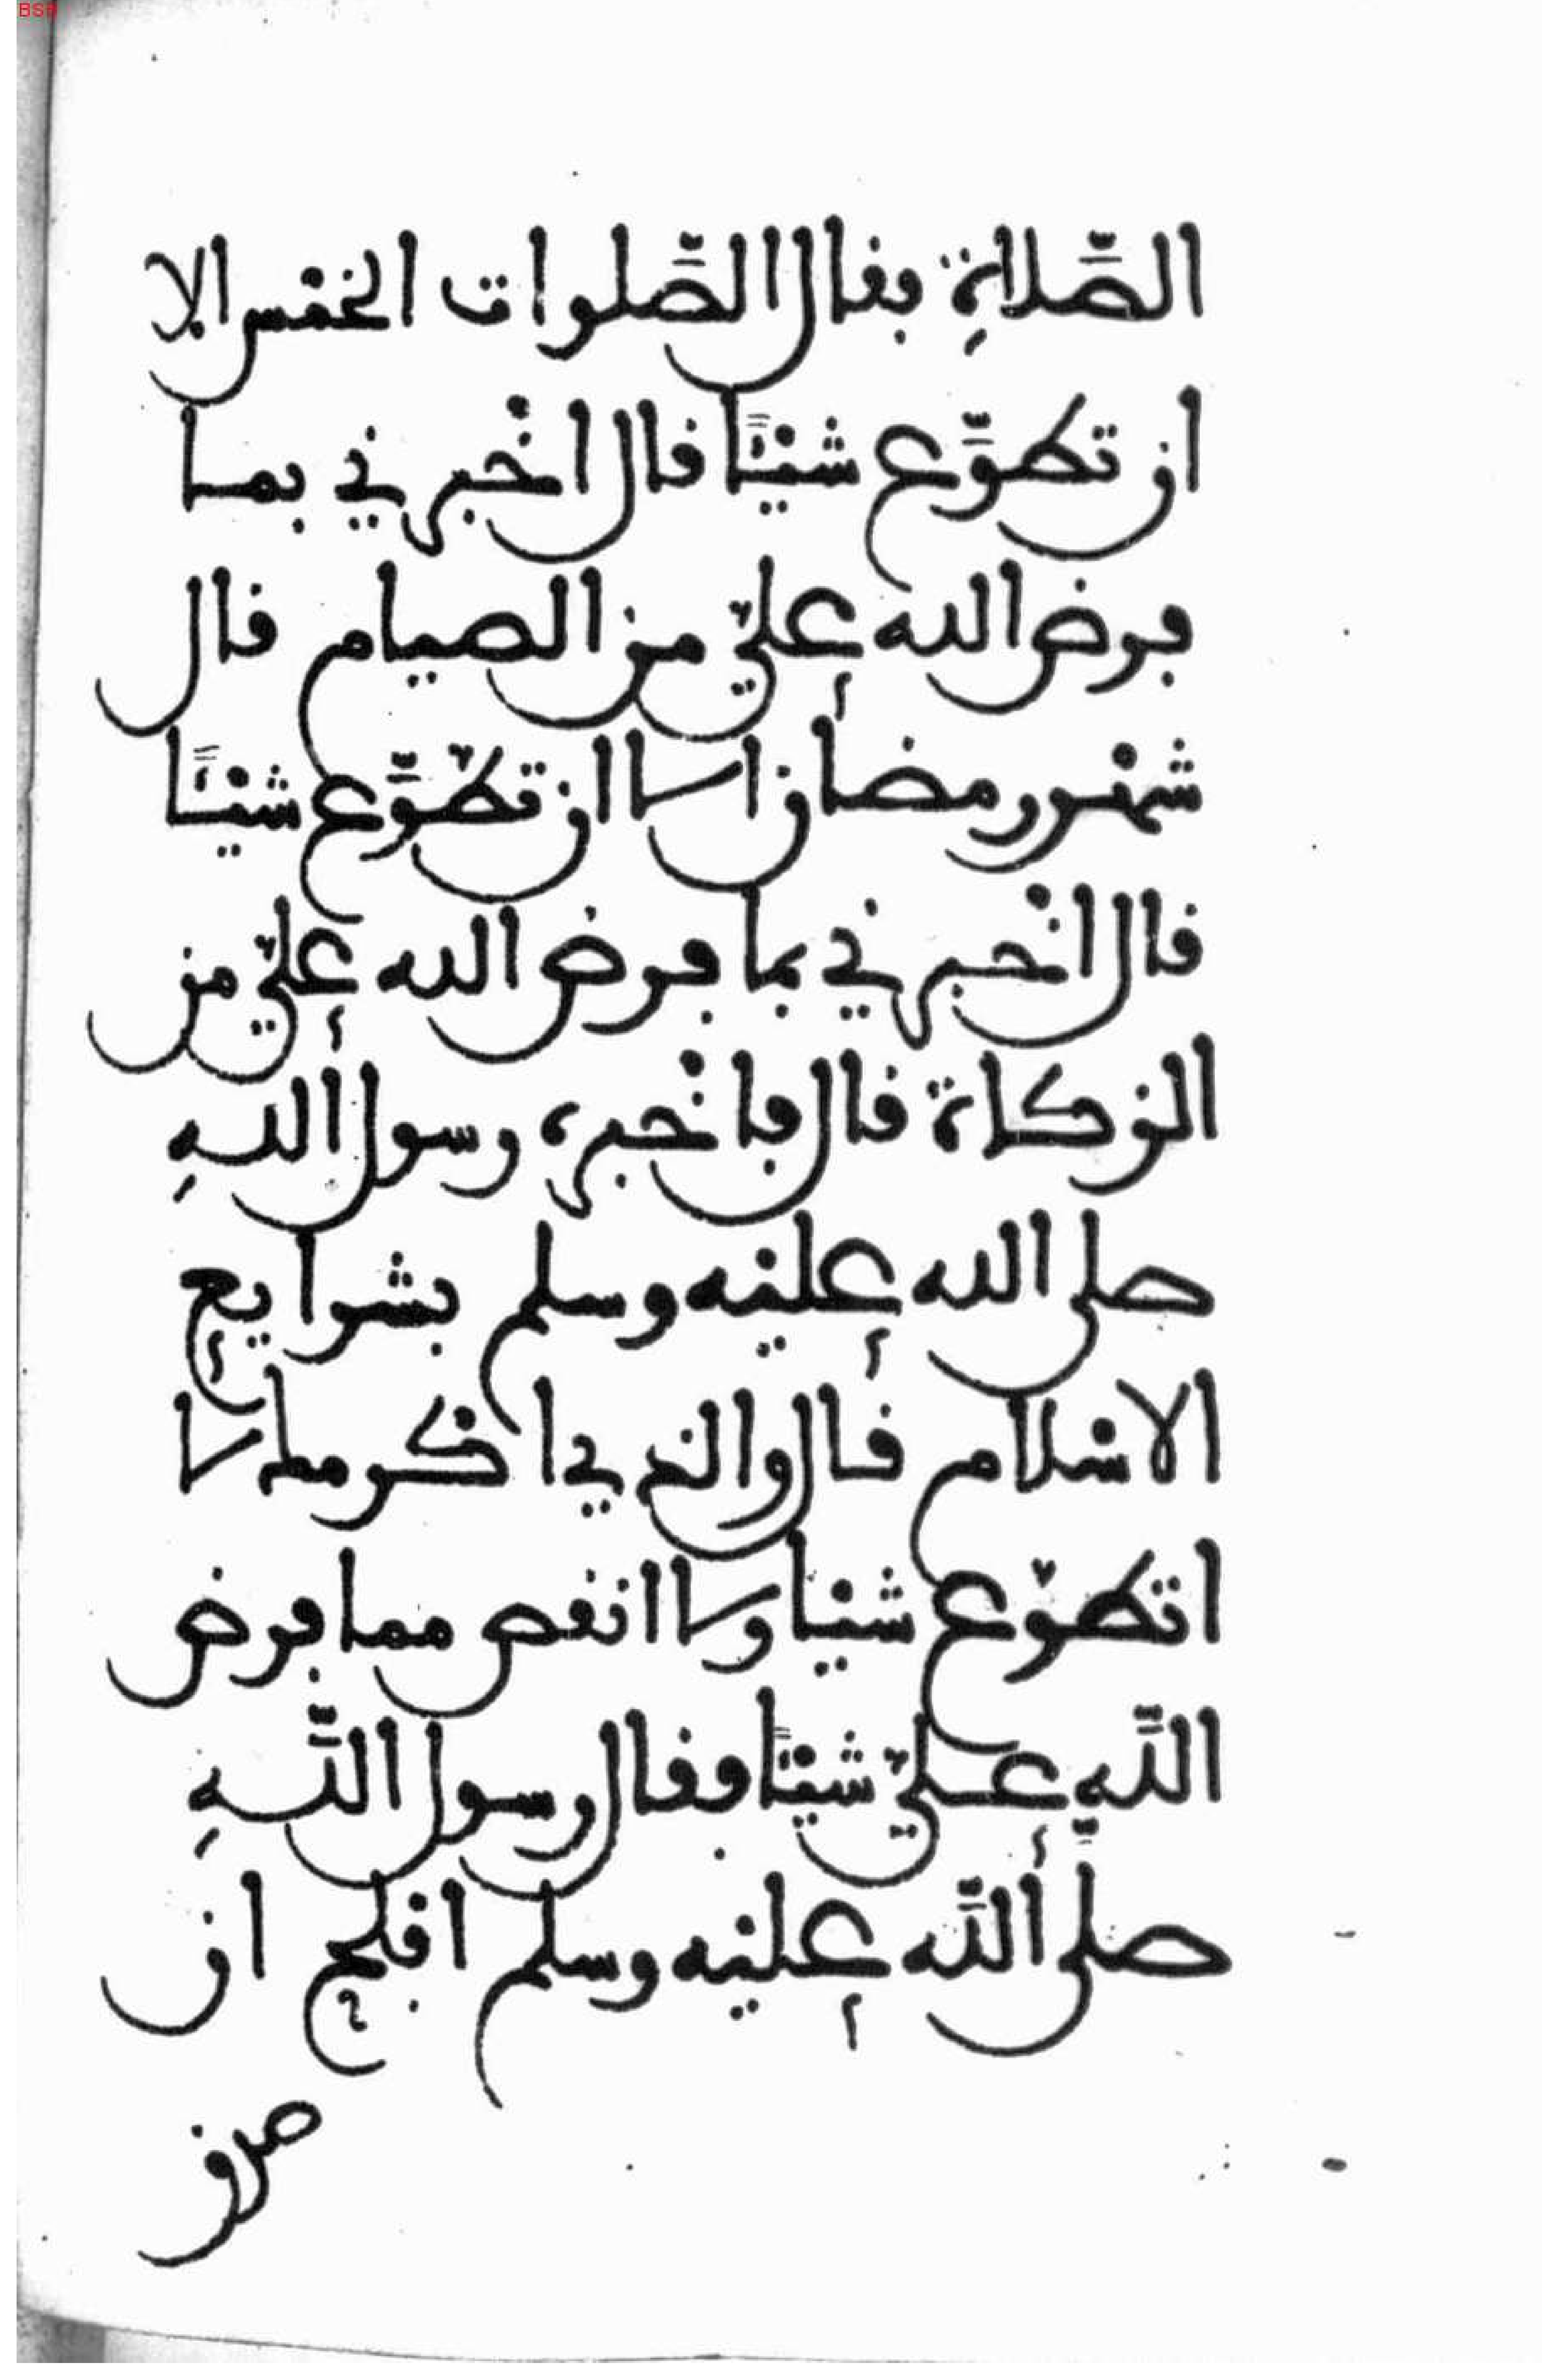 BSB
الصَّلاةِ فقال الصَّلوات الخمس الا
ان تطوَّع شيْئًا قال اخْبرني بما
فرض الله علي من الصيام قال
شهر رمضان الا ان تطَّوَّع شيْئًا
قال اخْبرني بما فرض الله علي من
الزكاة قال فاخْبره رسول اللهِ
صلى الله عليْه وسلم بشرايع
الاسْلام قال والذي اكرمك لا
اتطوع شيْئا ولا انقص مما فرض
اللَّهِ عليَّ شيْئًا فقال رسول اللَّهِ
صلَّى اللَّه عليْه وسلم افلح ان
صدق